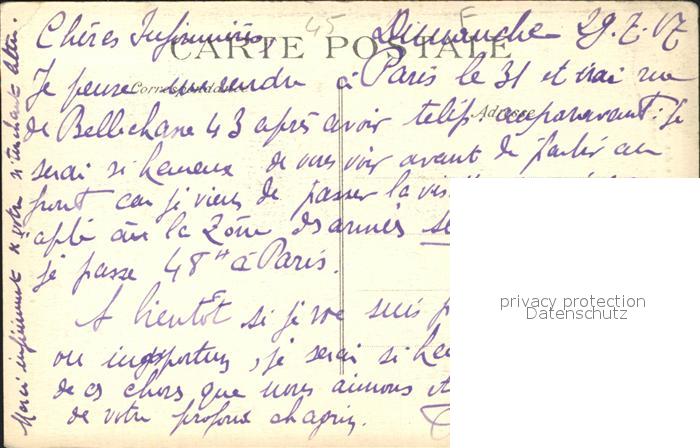 45
Chères Infirmières, Dimanche 29.7.17
CARTE POSTALE
Je pense me rendre à Paris le 31 et irai rue
Correspondance
Adresse
de Bellechasse 43 après avoir télép. auparavant: je
serai si heureux de vous voir avant de partir au
front car je viens de passer la vis
apte à la Zône des armées
je passe 48 H à Paris.
A bientôt si je ne suis p
ou importun, je serai si heu
de ces chers que nous aimons et
de votre profond chagrin.
Merci infiniment si votre si touchant
privacy protection
Datenschutz